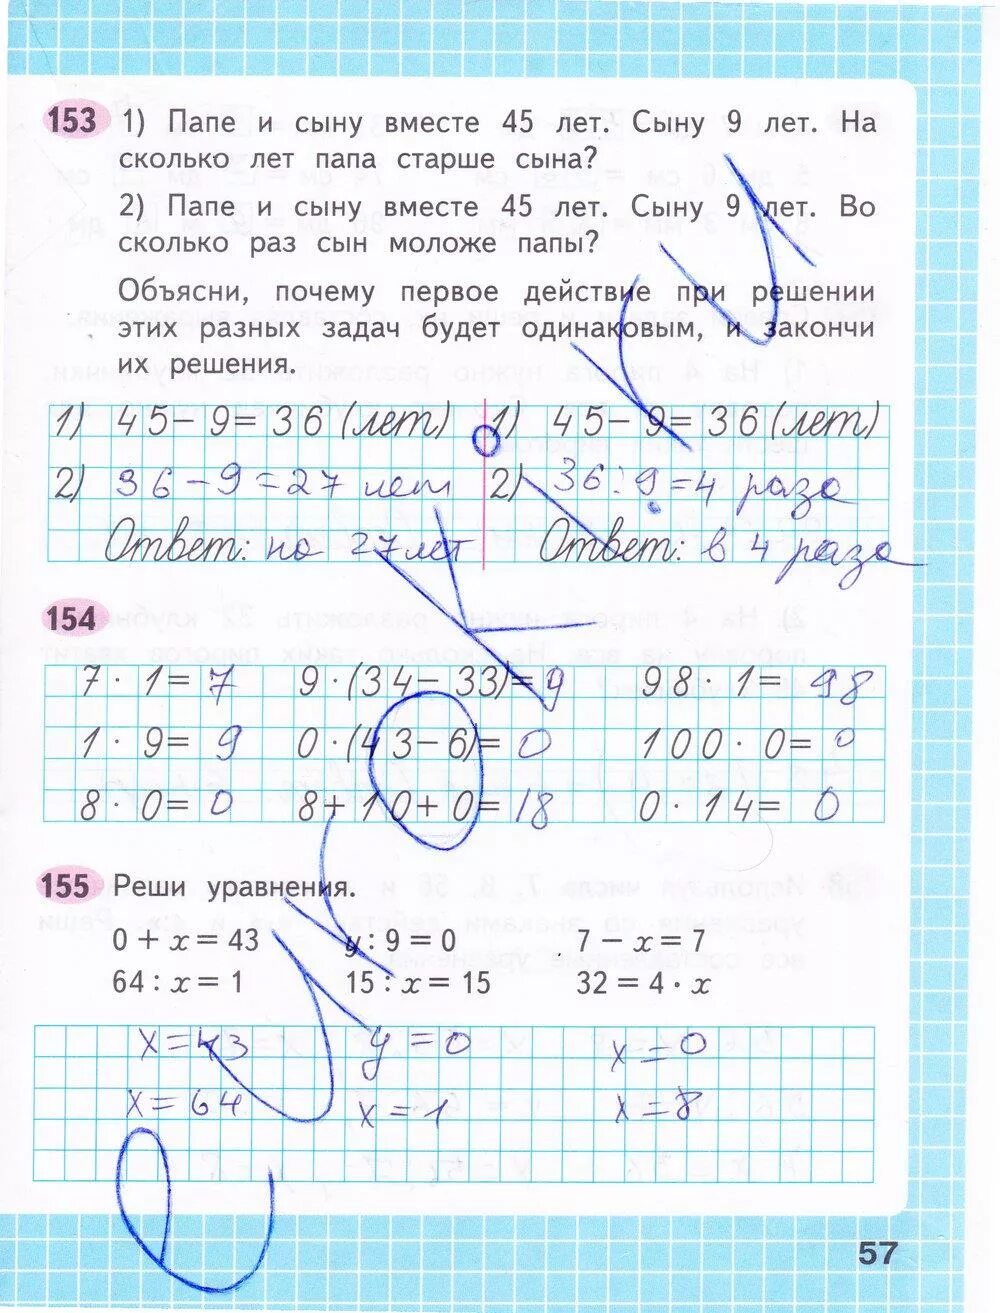 153 1) Папе и сыну вместе 45 лет. Сыну 9 лет. На
сколько лет папа старше сына?
2) Папе и сыну вместе 45 лет. Сыну 9 лет. Во
сколько раз сын моложе папы?
Объясни, почему первое действие при решении
этих разных задач будет одинаковым, и закончи
их решения.
1) 45-9=36 (лет) 1) 45-9=36 (лет)
2) 36-9=27 лет 2) 36:9=4 раза
Ответ: на 27 лет Ответ: в 4 раза
154
7·1=7 9·(34-33)=9 98·1=98
1·9=9 0·(43-6)=0 100·0=0
8·0=0 8+10+0=18 0·14=0
155 Реши уравнения.
0 + x = 43 y : 9 = 0 7 − x = 7
64 : x = 1 15 : x = 15 32 = 4 · x
x=43 y=0 x=0
x=64 x=1 x=8
57